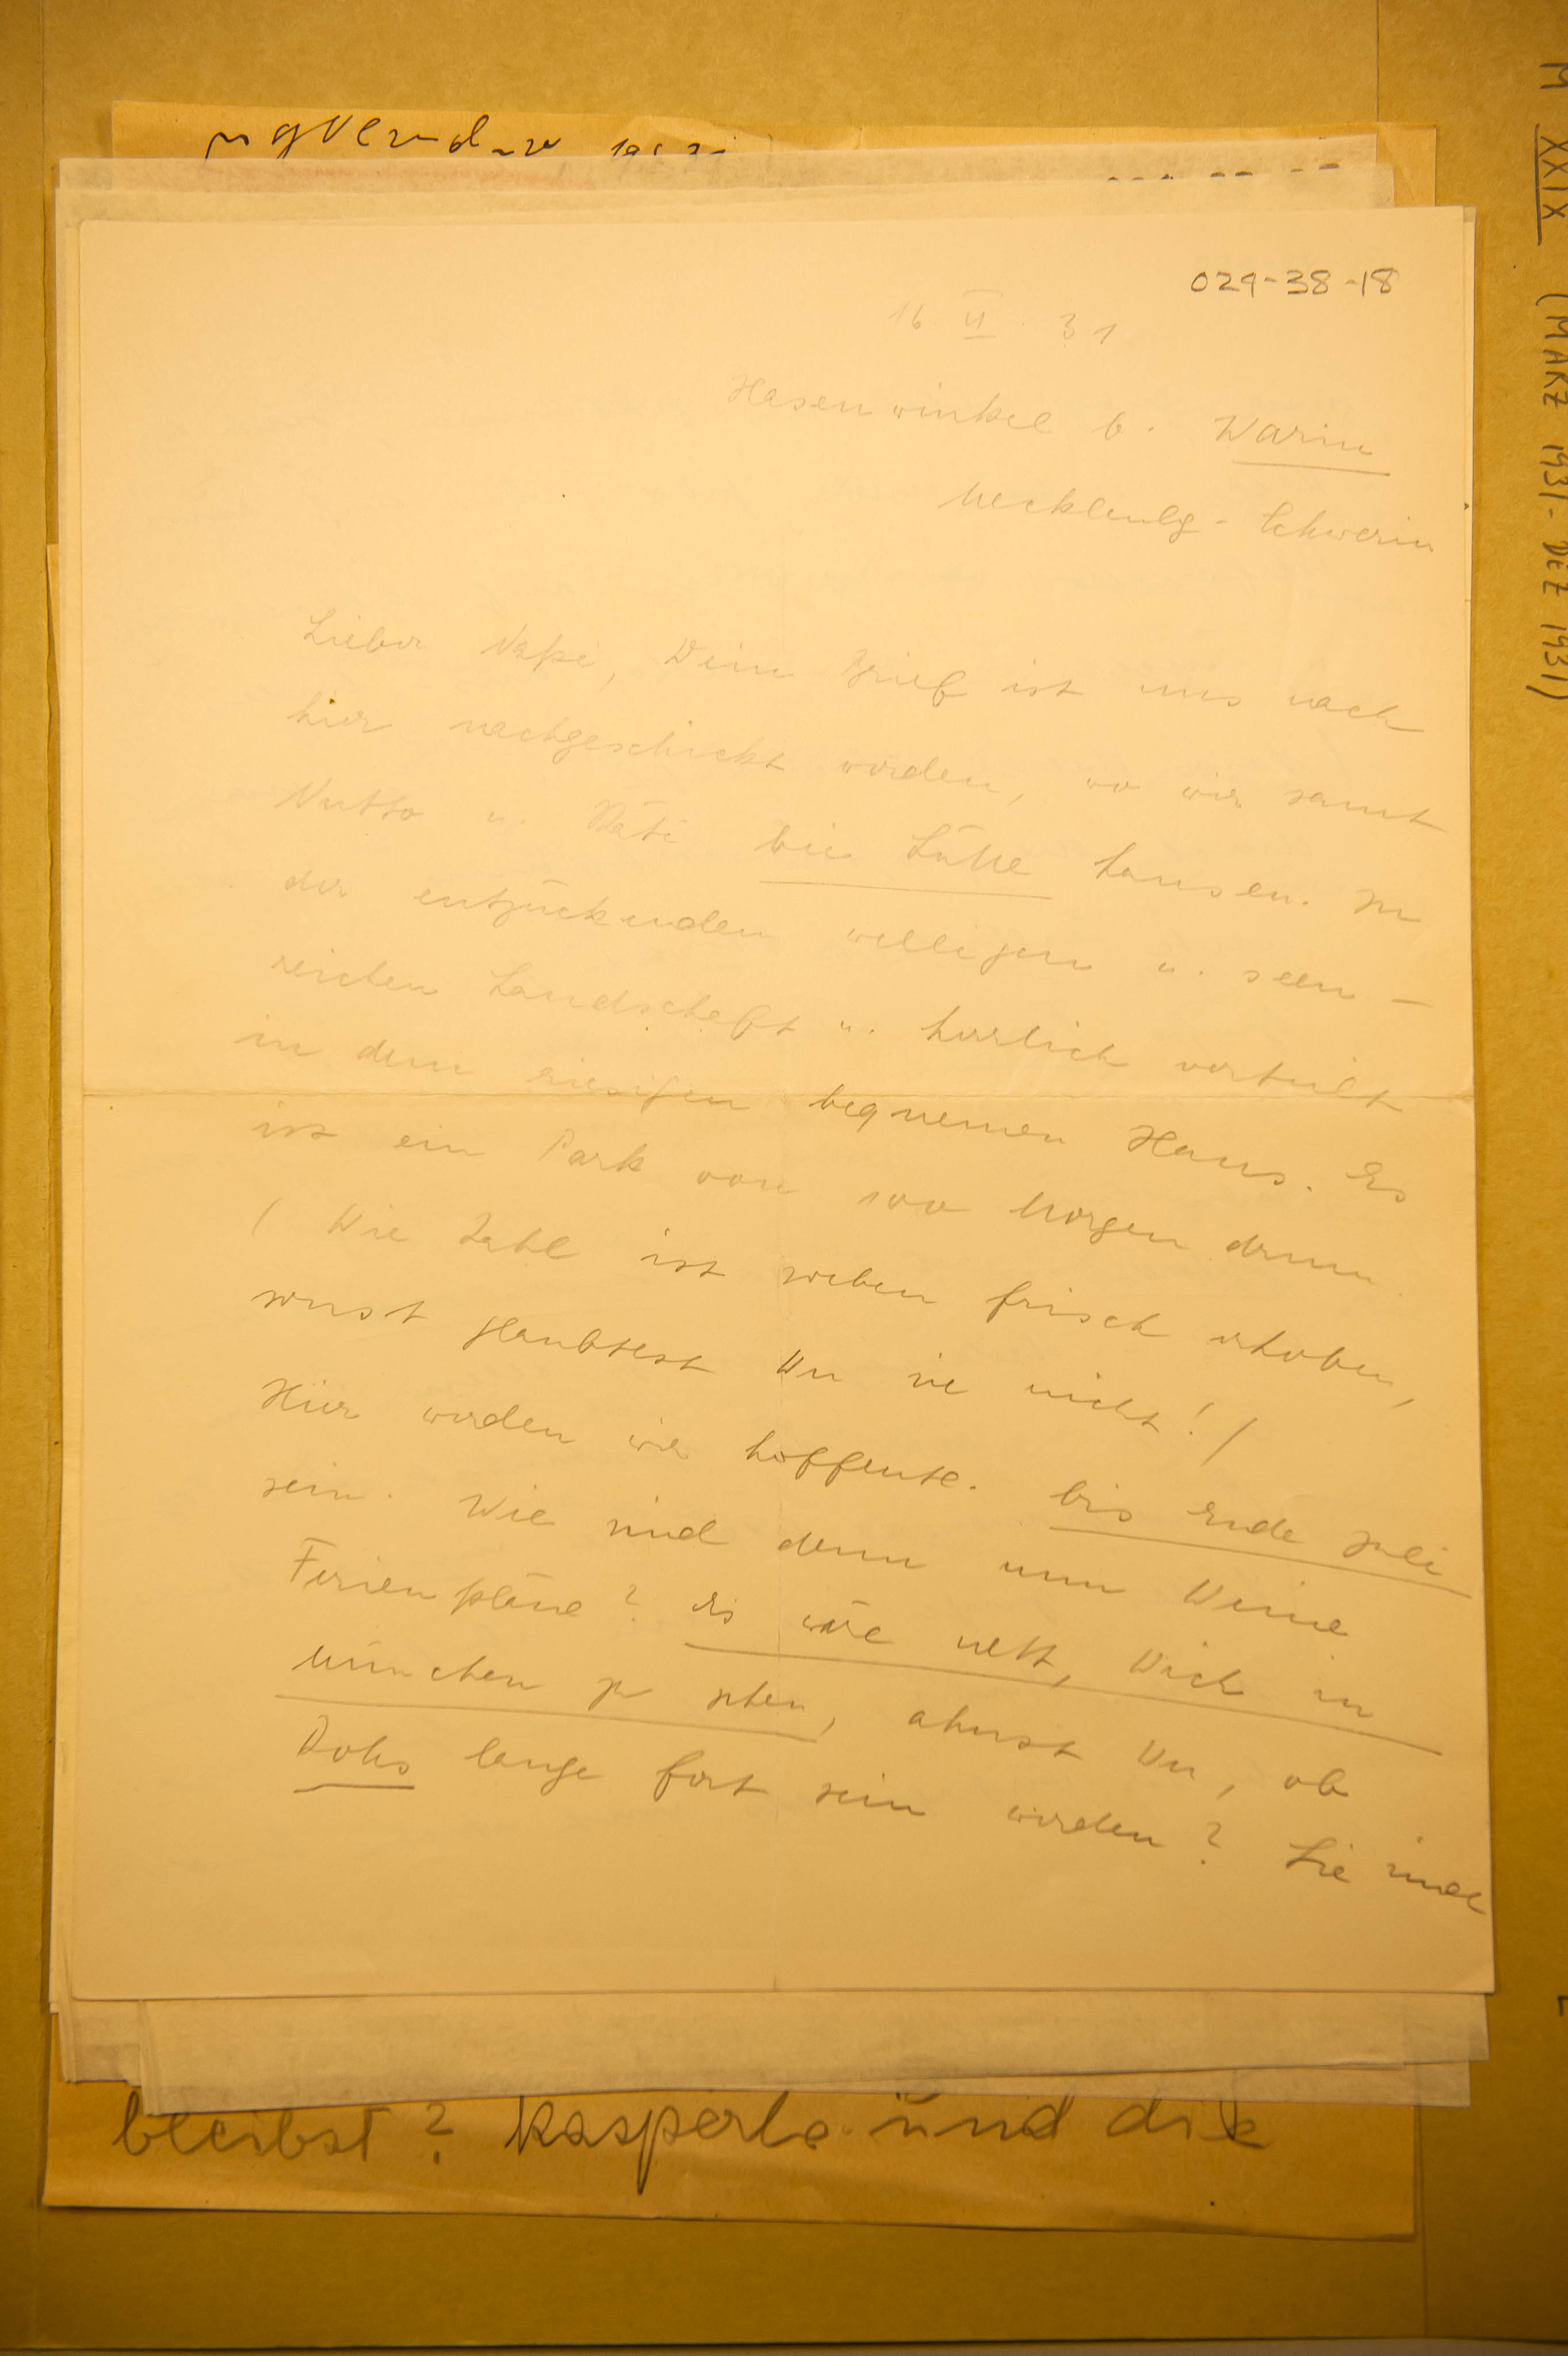 M XXIX (MARZ 1931 - DEZ 1931)
029-38-18
16. VI. 31
Hasenwinkel b. Warin
Mecklenbg - Schwerin
Lieber Dein Brief ist uns nach
hier nachgeschickt worden, wo wir samt
u. bei hausen. In
der entzückenden welligen u. seen-
reichen Landschaft u. herrlich verteilt
in dem riesigen bequemen Haus. Es
ist ein Park von 100 Morgen drum
( Die Zahl ist soeben frisch erhoben,
sonst glaubtest Du sie nicht! )
Hier werden wir hoffentl. bis Ende Juli
sein. Wie sind denn nun Deine
Ferienpläne? Es wäre nett, Dich in
München zu sehen, ahnst Du, ob
lange fort sein werden? Sie sind
bleibst? Kasperle und die